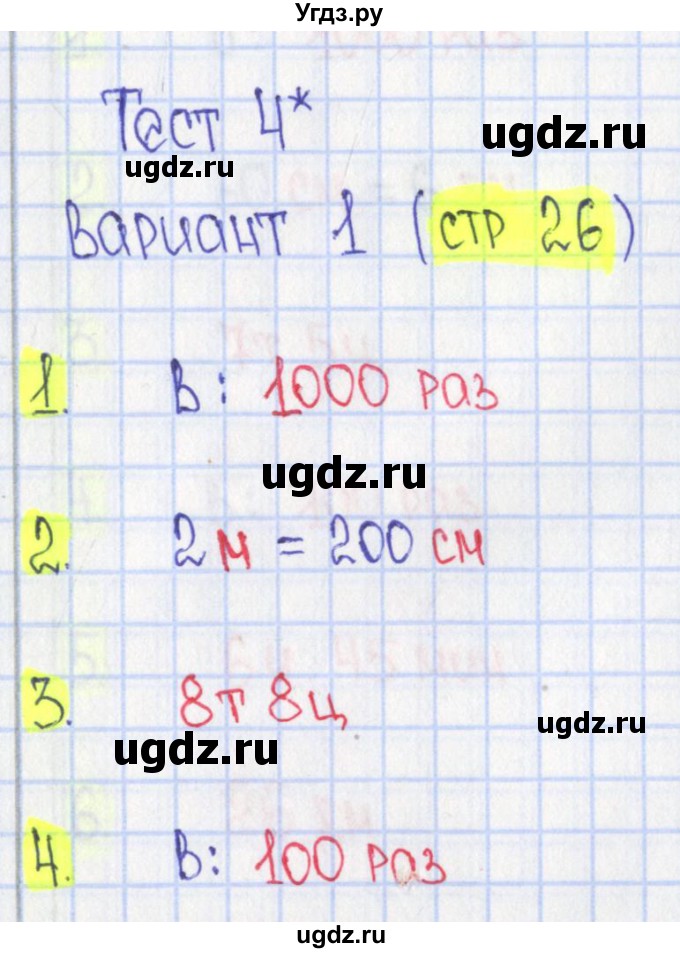 Угдз.ру
Тест 4*
ugdz.ru
ugdz.ru
вариант 1 (стр 26)
1. В: 1000 раз
ugdz.ru
2. 2м = 200 см
3. 8т 8ц
ugdz.ru
ugdz.ru
4. В: 100 раз
ugdz.ru